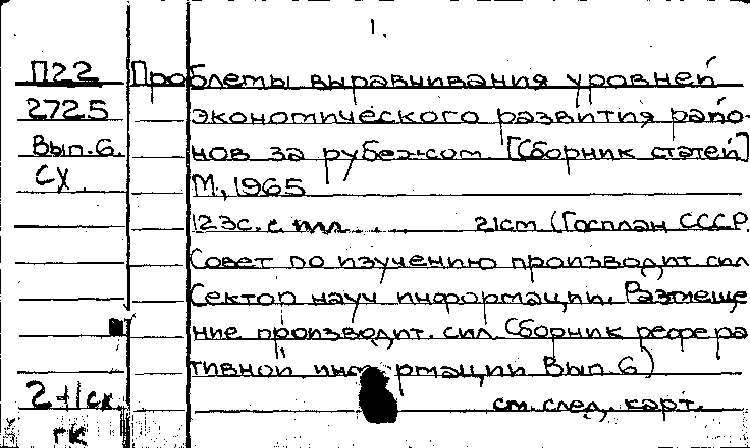 1.
П22 Проблемы выравнивания уровней
2725 экономического развития райо-
Вып.6. нов за рубежом. [Сборник статей]
СХ М., 1965
123с. с илл. .... 21см (Госплан СССР.
Совет по изучению производит. сил
Сектор науч информации. Размеще
ние производит. сил. Сборник рефера
тивной информации Вып. 6)
2+1сх. см. след. карт.
гк